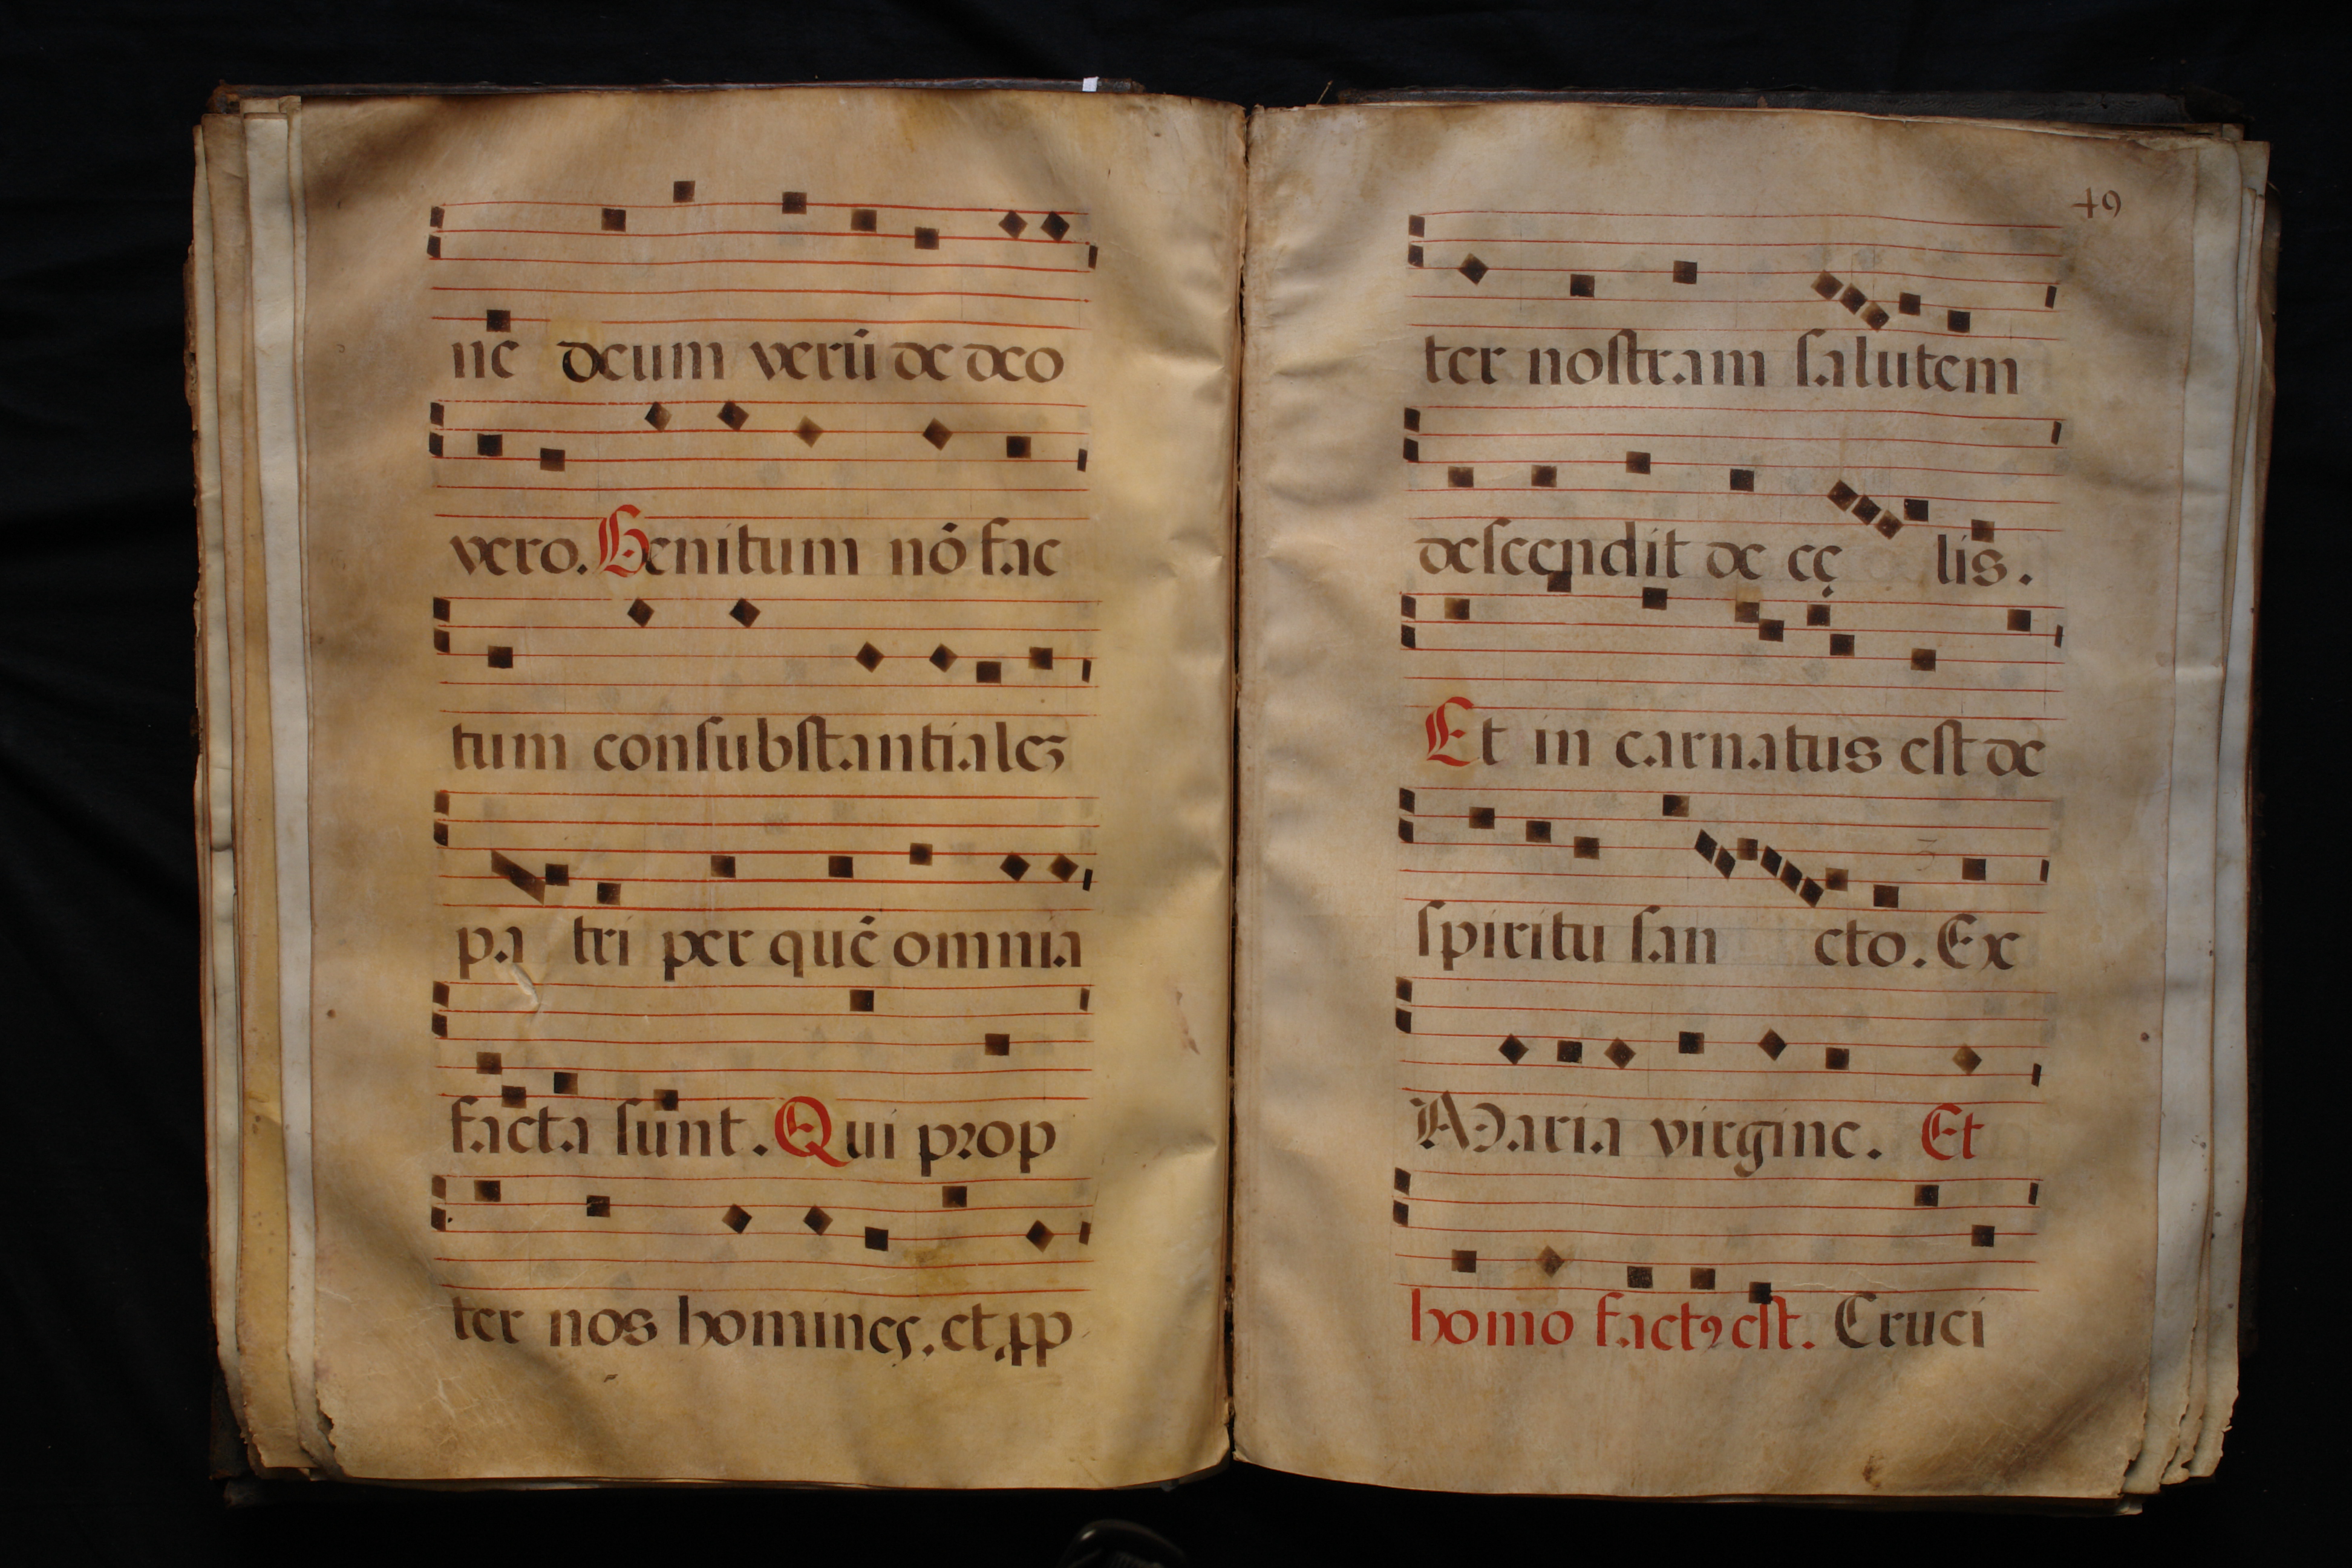 ne deum verū de deo
vero. Genitum nō fac
tum conſubſtantialeꝫ
pa tri per quē omnia
facta ſunt. Qui pꝛop
ter nos homineſ. et ꝓp
49
ter noſtram ſalutem
deſcendit de cę lis.
Et in carnatus eſt de
ſpiritu ſan cto. Ex
Maria virgine. Et
homo factꝰ eſt. Cruci